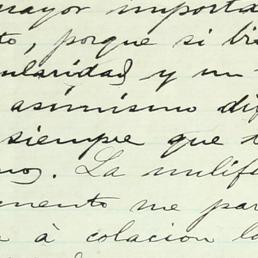 mayor importa
to, porque si bi
ularidad y un
asimismo di
siempre que
nos. La
mento me par
à colacion la